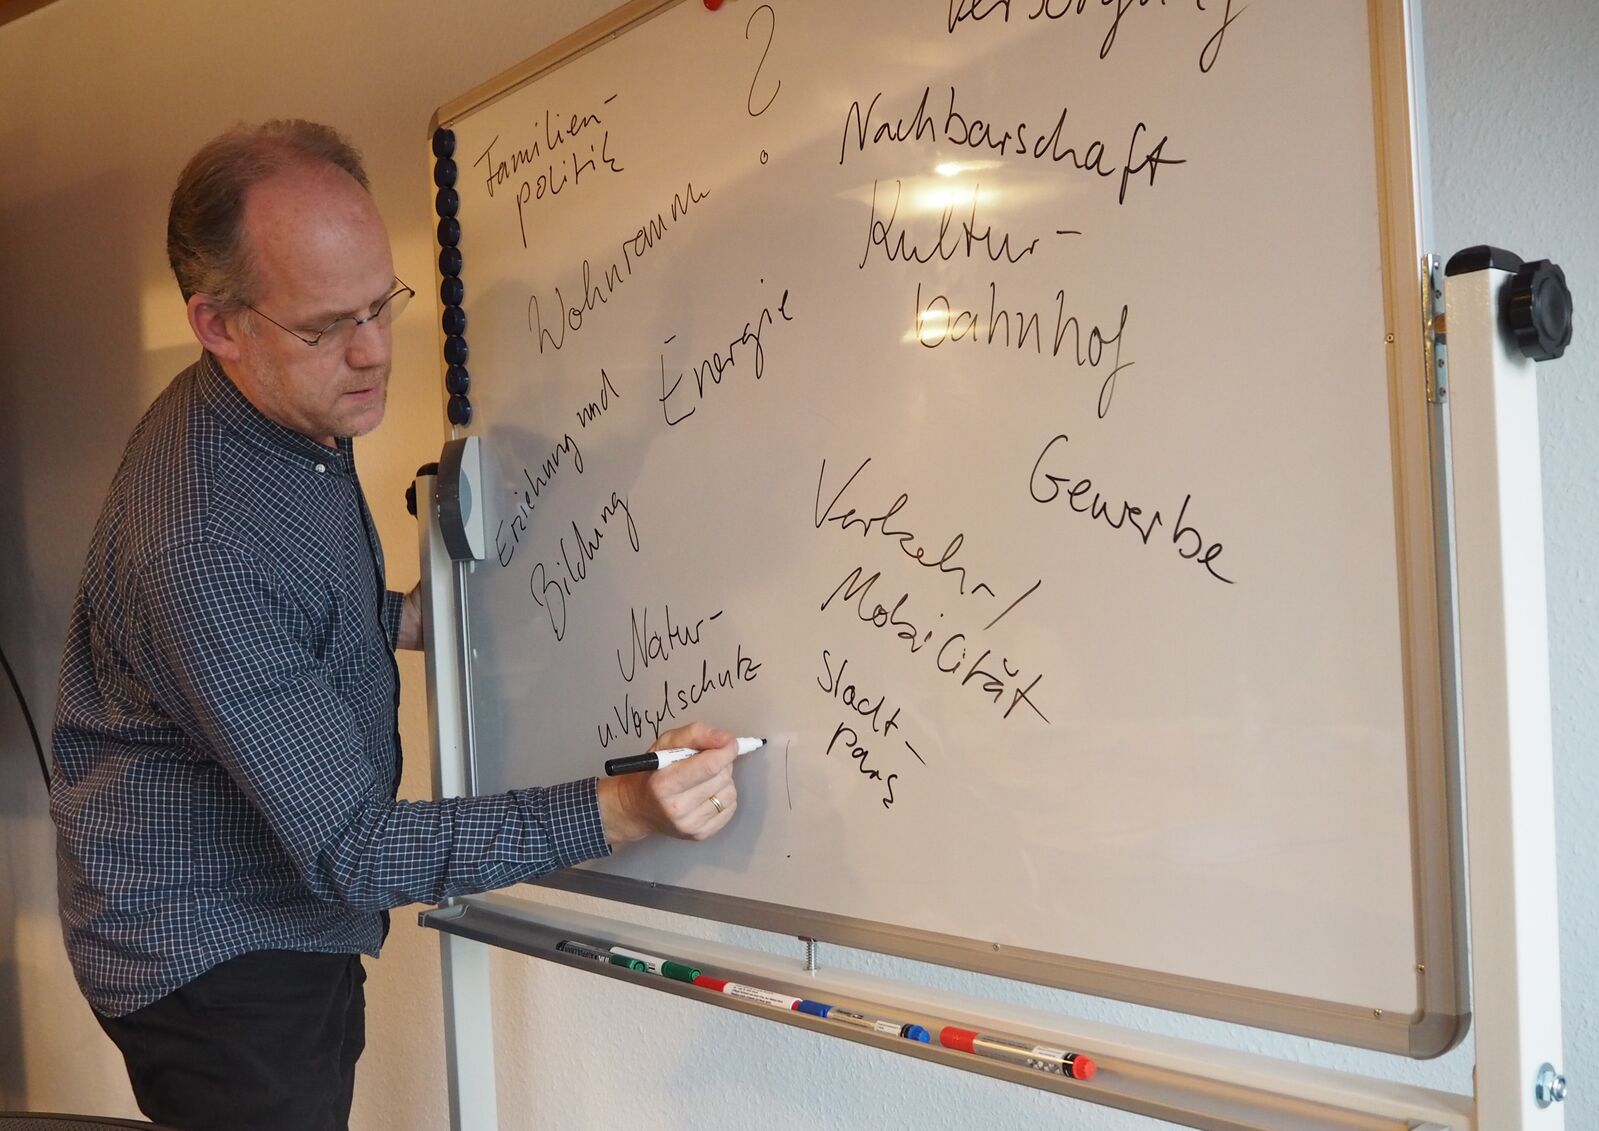 Versorgung
?
Familien-
politik
Nachbarschaft
Wohnraum
Kultur-
bahnhof
Energie
Erziehung und
Bildung
Gewerbe
Verkehr/
Mobilität
Natur-
u. Vogelschutz
Stadt-
pars